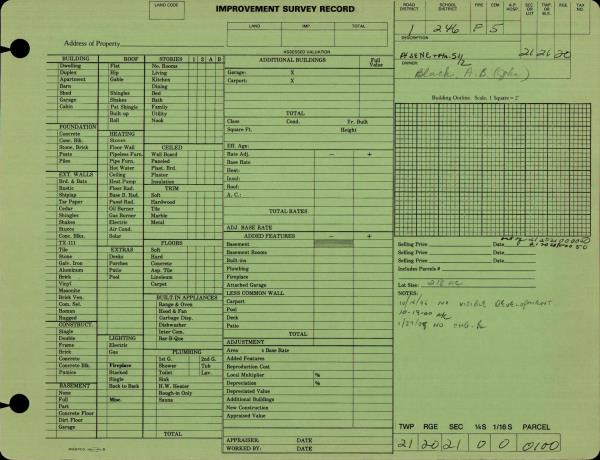 LAND CODE
IMPROVEMENT SURVEY RECORD
LAND IMP. TOTAL
ASSESSED VALUATION
Address of Property
ROAD DISTRICT SCHOOL DISTRICT FIRE CEM. A.P. HOSP. SEC OR LOT TWP. OR BLK. RGE. TAX NO.
246 F 5
DESCRIPTION
21 21 20
OWNER
Black, A.B.
BUILDING ROOF STORIES 1 2 A B
Dwelling Flat No. Rooms
Duplex Hip Living
Apartment Gable Kitchen
Barn Dining
Shed Shingles Bed
Garage Shakes Bath
Cabin Pat Shingle Family
Built up Utility
Roll Nook
FOUNDATION
Concrete HEATING CEILED
Conc. Blk. Stoves
Stone, Brick Floor-Wall Wall Board
Posts Pipeless Furn. Paneled
Piles Pipe Furn. Plast. Brd.
Hot Water Plaster
EXT. WALLS Ceiling Insulation
Brd. & Bats Heat Pump TRIM
Rustic Floor Rad. Soft
Shiplap Base B. Rad. Hardwood
Tar Paper Panel Rad. Metal
Cedar Oil Burner Tile
Shingles Gas Burner Marble
Shakes Electric Metal
Stucco Air Cond.
Conc. Blks. Solar FLOORS
TX-111 Soft
Tile EXTRAS Hard
Stone Decks Concrete
Galv. Iron Porches Asp. Tile
Aluminum Patio Linoleum
Brick Pool Carpet
Vinyl
Masonite BUILT IN APPLIANCES
Brick Ven. Range & Oven
Com. Sel. Hood & Fan
Roman Garbage Disp.
Rugged Dishwasher
CONSTRUCT. Inter Com.
Single Bar-B-Que
Double LIGHTING
Frame Electric PLUMBING
Brick Gas 1st G. 2nd G.
Concrete Shower Tub
Concrete Blk. Fireplace Toilet Lav.
Pumice Stacked Sink
Single H.W. Heater
BASEMENT Back to Back Rough-in Only
None Sauna
Full Misc.
Part
Concrete Floor
Dirt Floor
Garage
TOTAL
ADDITIONAL BUILDINGS Full Value
Garage: X
Carport: X
TOTAL
Class Cond. Yr. Built
Square Ft. Height
Eff. Age:
Rate Adj. − +
Base Rate
Heat:
Insul:
Roof:
A. C.:
TOTAL RATES
ADJ. BASE RATE
ADDED FEATURES − +
Basement
Basement Rooms
Built-ins
Plumbing
Fireplace
Attached Garage
LESS COMMON WALL
Carport
Pool
Deck
Patio
TOTAL
ADJUSTMENT
Area x Base Rate
Added Features
Reproduction Cost
Local Multiplier %
Depreciation %
Depreciated Value
Additional Buildings
New Construction
Appraised Value
APPRAISER: DATE
WORKED BY: DATE
Building Outline: Scale, 1 Square =
Selling Price Date
Selling Price Date
Selling Price Date
Includes Parcels #
Lot Size:
NOTES:
NO VISIBLE DEVELOPMENT
NO CHG.
TWP RGE SEC ¼S 1/16 S PARCEL
21 20 21 0 0 0100